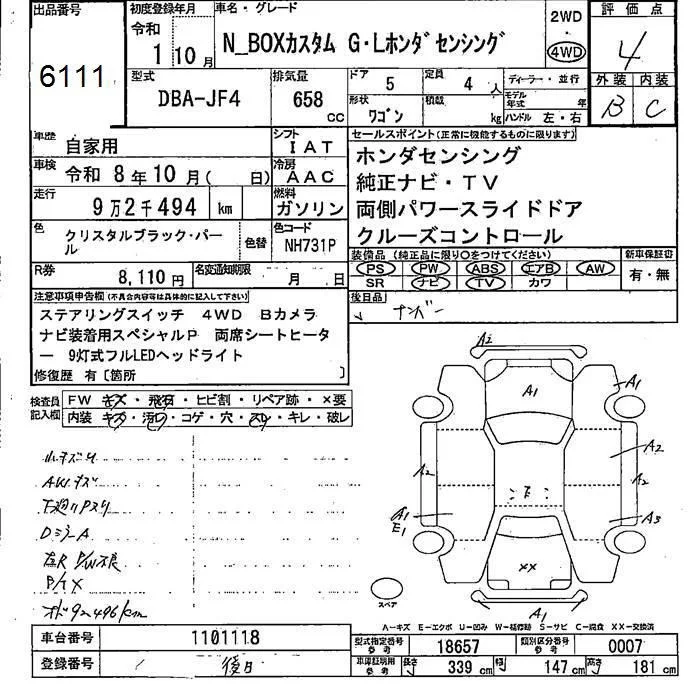 出品番号
6111
初度登録年月
令和
1 10月
車名・グレード
N_BOXカスタム G・Lホンダセンシング
2WD
・
4WD
評価点
4
外装 内装
B C
型式
DBA-JF4
排気量
658 cc
ドア 5
定員 4 人
形状 ワゴン
積載 kg
ディーラー・並行
モデル年式 年
ハンドル 左・右
車歴 自家用
シフト IAT
車検 令和 8年10月( 日)
冷房 AAC
走行 9万2千494 km
燃料 ガソリン
色 クリスタルブラック・パール
色替
色コード NH731P
R券 8,110円
名変通知期限 月 日
セールスポイント(正常に機能するものに限ります)
ホンダセンシング
純正ナビ・TV
両側パワースライドドア
クルーズコントロール
装備品(純正品に限り○をつけてください)
PS PW ABS エアB AW
SR ナビ TV カワ
新車保証書
有・無
後日品
ナンバー
注意事項申告欄(不具合内容等は具体的に記入して下さい)
ステアリングスイッチ 4WD Bカメラ
ナビ装着用スペシャルP 両席シートヒータ
ー 9灯式フルLEDヘッドライト
修復歴 有〔箇所 〕
検査員記入欄
FW キズ・飛石・ヒビ割・リペア跡・×要
内装 キズ・汚レ・コゲ・穴・スレ・キレ・破レ
小キズ
AWキズ
下廻リPサリ
DミラーA
左R P/W不良
P/T X
オド92496km
A2
A1
A1
A2
A2
A2
A1
E1
A3
下
XX
A1
スペア
A―キズ E―エクボ U―凹み W―補修跡 S―サビ C―腐食 XX―交換済
車台番号 1101118
登録番号 後日
型式指定番号 参考 18657
類別区分番号 参考 0007
車庫証明用 参考
長さ 339 cm
幅 147 cm
高さ 181 cm